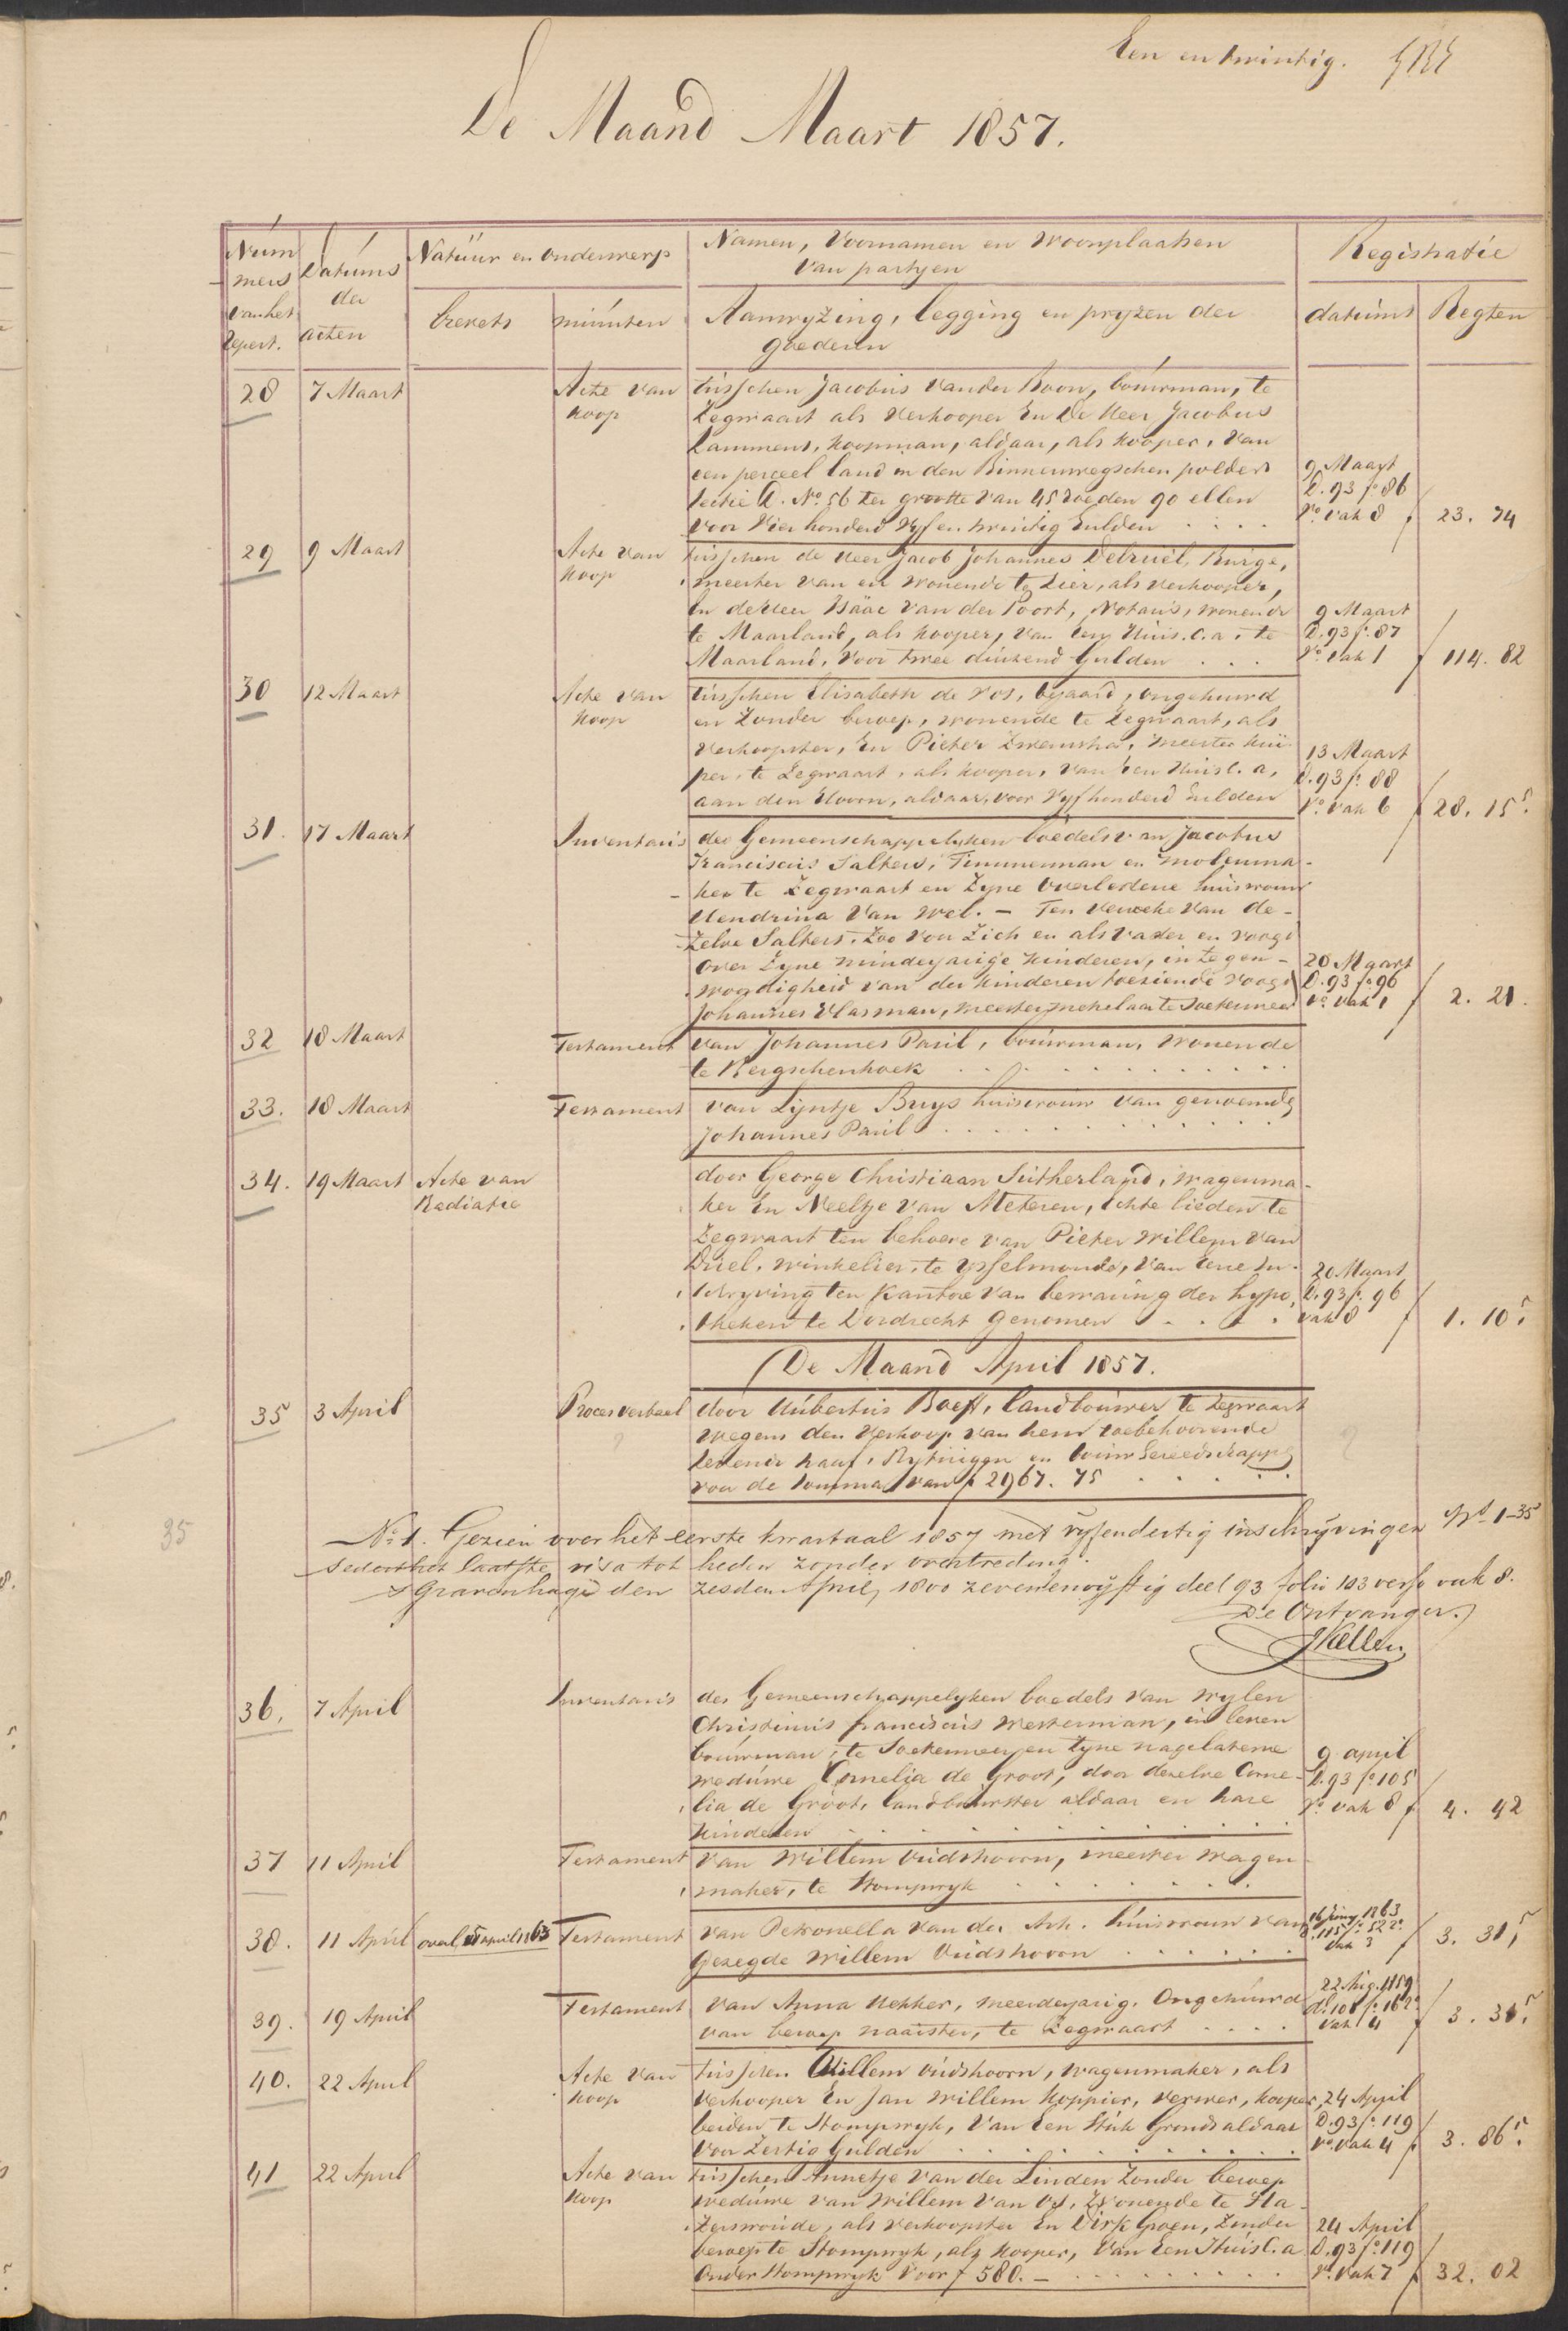 Een en twintig.
De Maand Maart 1857.
Num
mers
van het
Repert.
Datums
der
acten
Natuur en Onderwerp
brevets
minuten
Namen, Voornamen en Woonplaatsen
van partyen
Aanwyzing, legging en pryzen der
goederen
Registratie
datums
Regten
28 7 Maart
Acte van
Koop
tusschen Jacobus van der Boon, bouwman, te
Zegwaart als verkooper En De Heer Jacobus
Lammens, Koopman, aldaar, als kooper, van
een perceel land in den Binnenwegschen polder
sectie D. No. 56 ter grootte van 45 roeden 90 ellen
voor Vier honderd Vyf en twintig Gulden . . . .
9 Maart
D. 93 fo. 86
Vo. vak 8 f 23. 74
29 9 Maart
Acte van
Koop
tusschen de Heer Jacob Johannes Delruel, Burge-
meester van en wonende te Lier, als verkooper,
En de Heer Isäac van der Poort, Notaris, wonende
te Maasland, als kooper, van een Huis c.a. te
Maasland, voor twee duizend Gulden . . .
9 Maart
D. 93 fo. 87
Vo. vak 1 f 114. 82
30 12 Maart
Acte van
Koop
tusschen Elisabeth de Vos, bejaard, ongehuwd
en zonder beroep, wonende te Zegwaart, als
verkoopster, En Pieter Zwemstra, meester kui-
per, te Zegwaart, als kooper, van Een Huis c.a.
aan den Hoorn, aldaar, voor Vyf honderd Gulden
13 Maart
D. 93 fo. 88
Vo. vak 6 f 28. 15⁵
31. 17 Maart
Inventaris
des Gemeenschappelyken boedels van Jacobus
Franciscus Salters, Timmerman en molenma-
ker te Zegwaart en Zyne Overledene huisvrouw
Hendrina van Wel. — Ten verzoeke van de-
zelve Salters, Zoo voor Zich en als vader en voogd
over Zyne minderjarige kinderen, in tegen-
woordigheid van der kinderen toeziende voogd
Johannes Vlasman, meester metselaar te Soetermeer
20 Maart
D. 93 fo. 96
Vo. vak 1 f 2. 21.
32 18 Maart
Testament
van Johannes Paul, bouwman, wonende
te Bergschenhoek . . . . . . . . . .
33. 18 Maart
Testament
van Lyntje Buys huisvrouw van genoemde
Johannes Paul . . . . . . . . . .
34. 19 Maart Acte van
Radiatie
door George Christiaan Sutherland, wagenma-
ker En Neeltje van Meteren, Echte lieden te
Zegwaart ten behoeve van Pieter Willem van
Driel, winkelier, te Ysselmonde, van eene In-
schryving ten Kantore van bewaring der hypo-
theken te Dordrecht genomen . . . .
20 Maart
D. 93 fo. 96
vak 8 f 1. 10⁵
De Maand April 1857.
35 3 April
Proces verbaal
door Hubertus Boeff, landbouwer te Zegwaart
wegens den Verkoop van hem toebehoorende
levende haaf, Rytuigen en bouw Gereedschappen
voor de Somma van f 2967. 75 . . . . .
35
No. 1. Gezien over het eerste kwartaal 1857 met vyfendertig inschryvingen No. 1-35
sedert het laatste visa tot heden zonder overtreding.
's Gravenhage den zesden April 1800 zevenenvyftig deel 93 folio 103 verso vak 8.
De Ontvanger.
36. 7 April
Inventaris
des Gemeenschappelyken boedels van wylen
Christinus franciscus Westerman, in leven
bouwman, te Soetermeer, en Zyne nagelatene
weduwe Cornelia de Groot, door dezelve Corne-
lia de Groot, landbouwster aldaar en hare
kinderen . . . . . . . . . . .
9 april
D. 93 fo. 105
Vo. vak 8 f 4. 42
37 11 April
Testament
van Willem Oudshoorn, meester wagen-
maker, te Stompwyk . . . . . . .
38. 11 April
Testament
van Petronella van der Ark. huisvrouw van
gezegde Willem Oudshoorn . . . . . .
vak 3 f 3. 31⁵
39. 19 April
Testament
van Anna Hekker, meerderjarig. Ongehuwd
van beroep naaister, te Zegwaart . . . .
22 Aug. 1859
vak 4 f 3. 31⁵
40. 22 April
Acte van
Koop
tusschen Willem Oudshoorn, wagenmaker, als
verkooper En Jan Willem Koppier, verwer, kooper,
beiden te Stompwyk, van Een Stuk Gronds aldaar
voor Zestig Gulden . . . . . . . . .
24 April
D. 93 fo. 119
Vo. vak 4 f 3. 86⁵
41 22 April
Acte van
Koop
tusschen Annetje van der Linden Zonder beroep
weduwe van Willem van Os, wonende te Ha-
zerswoude, als verkoopster En Dirk Groen, Zonder
beroep te Stompwyk, als kooper, van Een Huis c.a.
onder Stompwyk voor f 580. — . . . . . . . .
24 April
D. 93 fo. 119
Vo. vak 7 f 32. 02